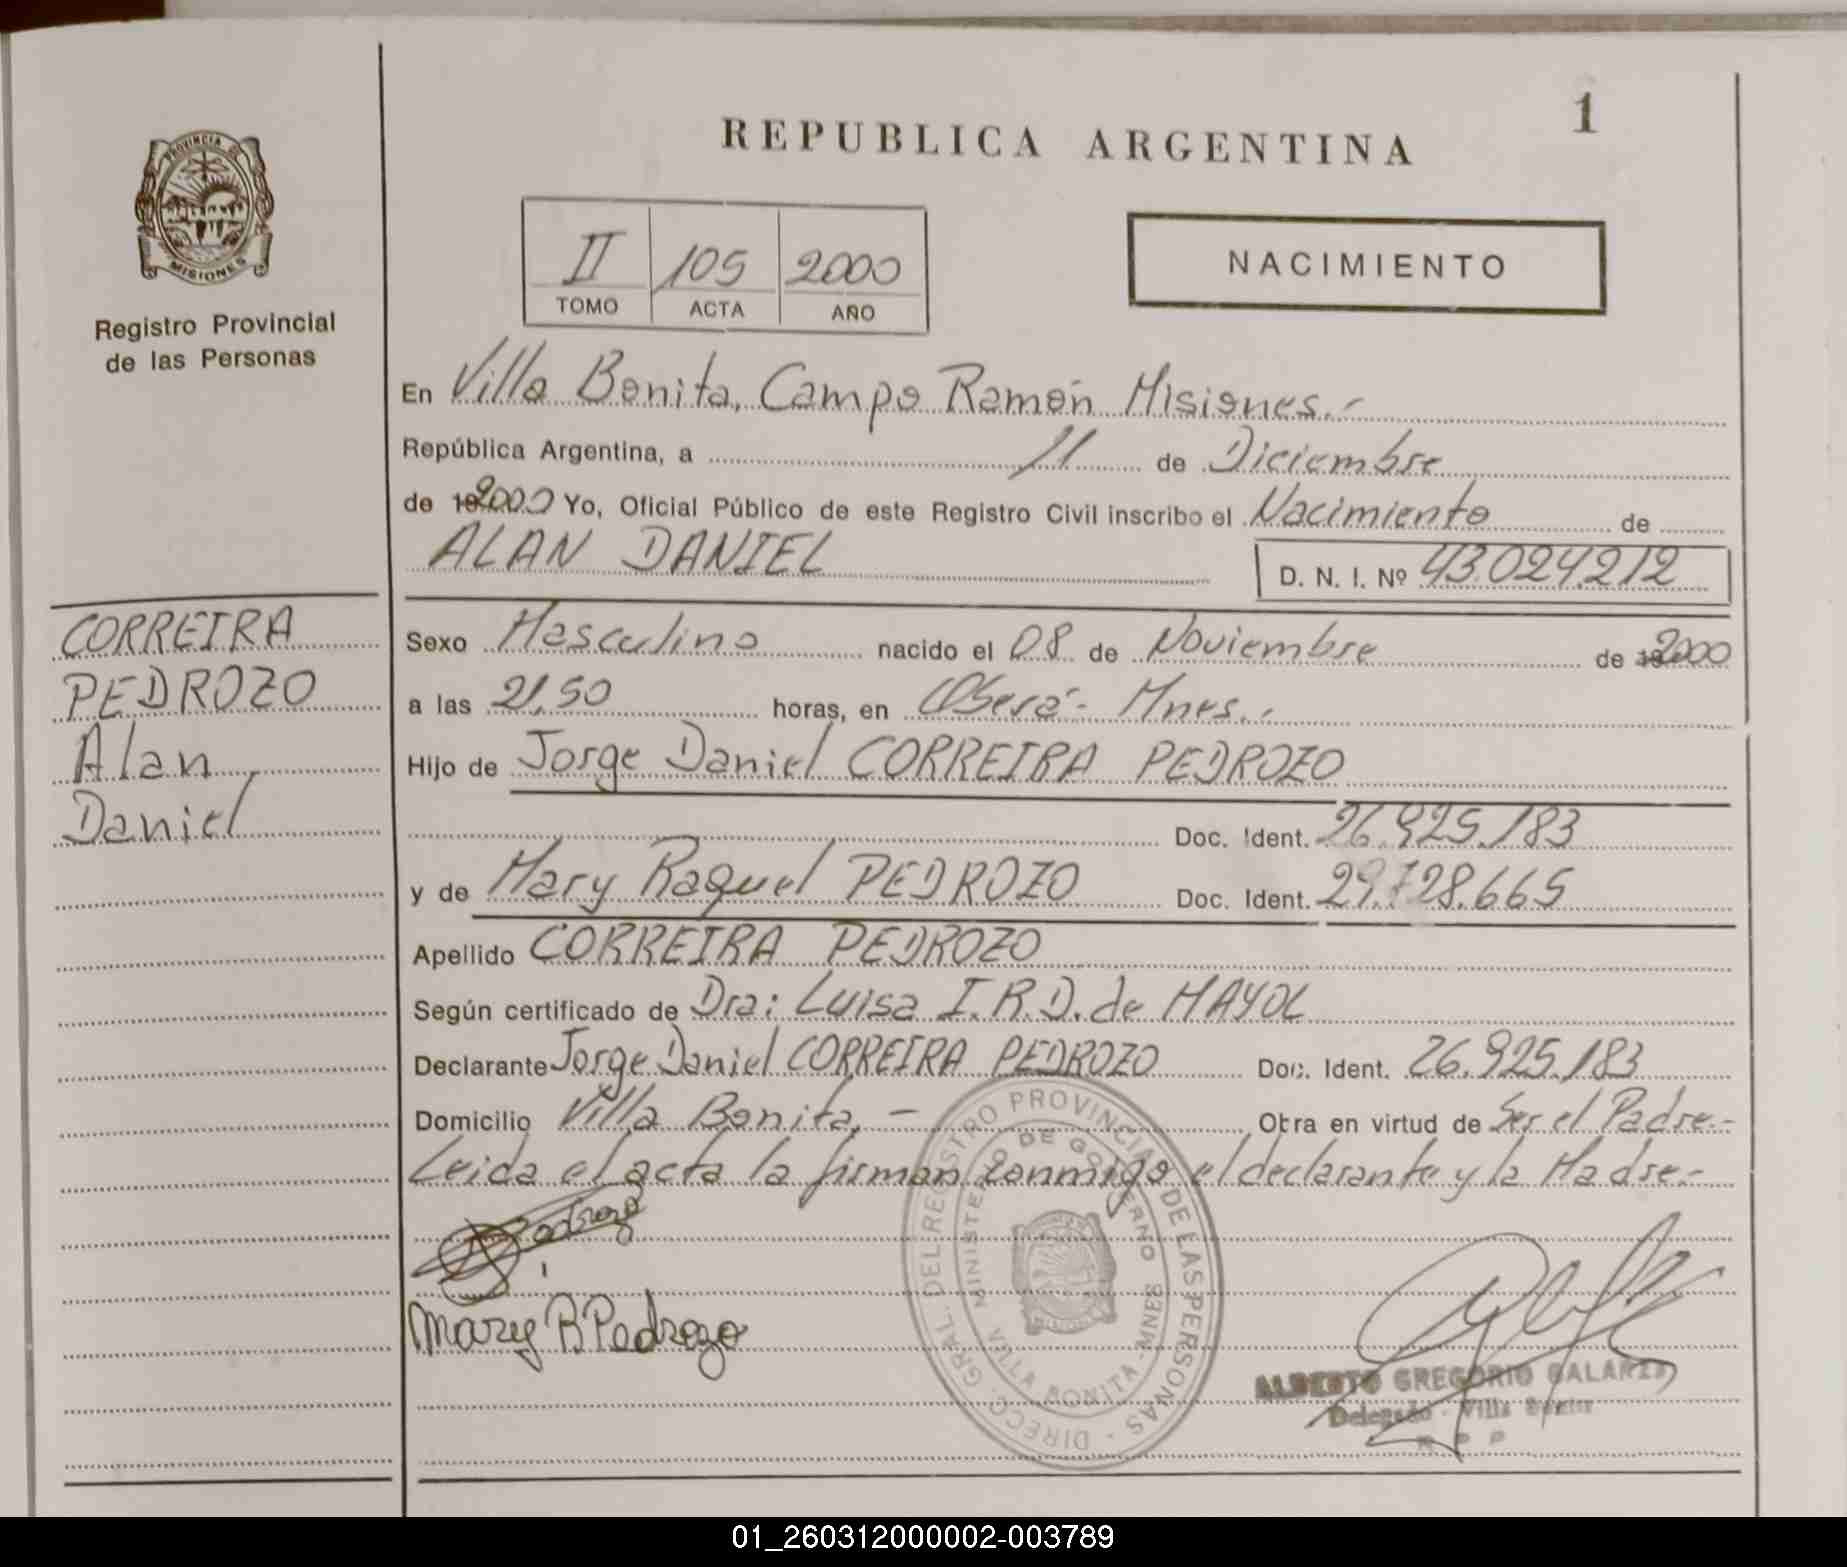 REPUBLICA ARGENTINA
1
PROVINCIA DE
MISIONES
Registro Provincial
de las Personas
II 105 2000
TOMO ACTA AÑO
NACIMIENTO
En Villa Bonita, Campo Ramón Misiones.-
República Argentina, a 11 de Diciembre
de 2000 Yo, Oficial Público de este Registro Civil inscribo el Nacimiento de
ALAN DANIEL D. N. I. Nº 43.024.212
CORREIRA
PEDROZO
Alan
Daniel
Sexo Masculino nacido el 08 de Noviembre de 2000
a las 21,50 horas, en Oberá- Mnes.-
Hijo de Jorge Daniel CORREIRA PEDROZO
Doc. Ident. 26.925.183
y de Mary Raquel PEDROZO Doc. Ident. 29.728.665
Apellido CORREIRA PEDROZO
Según certificado de Dra: Luisa I.R.D. de MAYOL
Declarante Jorge Daniel CORREIRA PEDROZO Doc. Ident. 26.925.183
Domicilio Villa Bonita,- Obra en virtud de Ser el Padre.-
Leida el acta la firman conmigo el declarante y la Madre.-
Mary R. Pedrozo
DIRECC. GRAL. DEL REGISTRO PROVINCIAL DE LAS PERSONAS -
MINISTERIO DE GOBIERNO
VILLA BONITA - MNES
ALBERTO GREGORIO GALARZA
Delegado - Villa Bonita
R P P
01_260312000002-003789